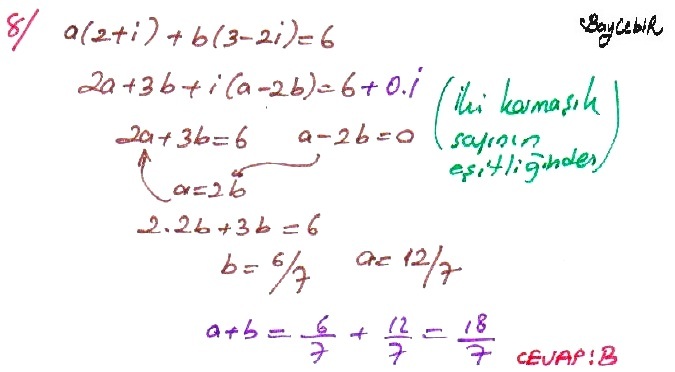 8/ a(2+i)+b(3-2i)=6
BayCebiR
2a+3b+i(a-2b)=6+0.i
(İki karmaşık
sayının
eşitliğinden)
2a+3b=6 a-2b=0
a=2b
2.2b+3b=6
b=6/7 a=12/7
a+b= 6/7 + 12/7 = 18/7
CEVAP:B